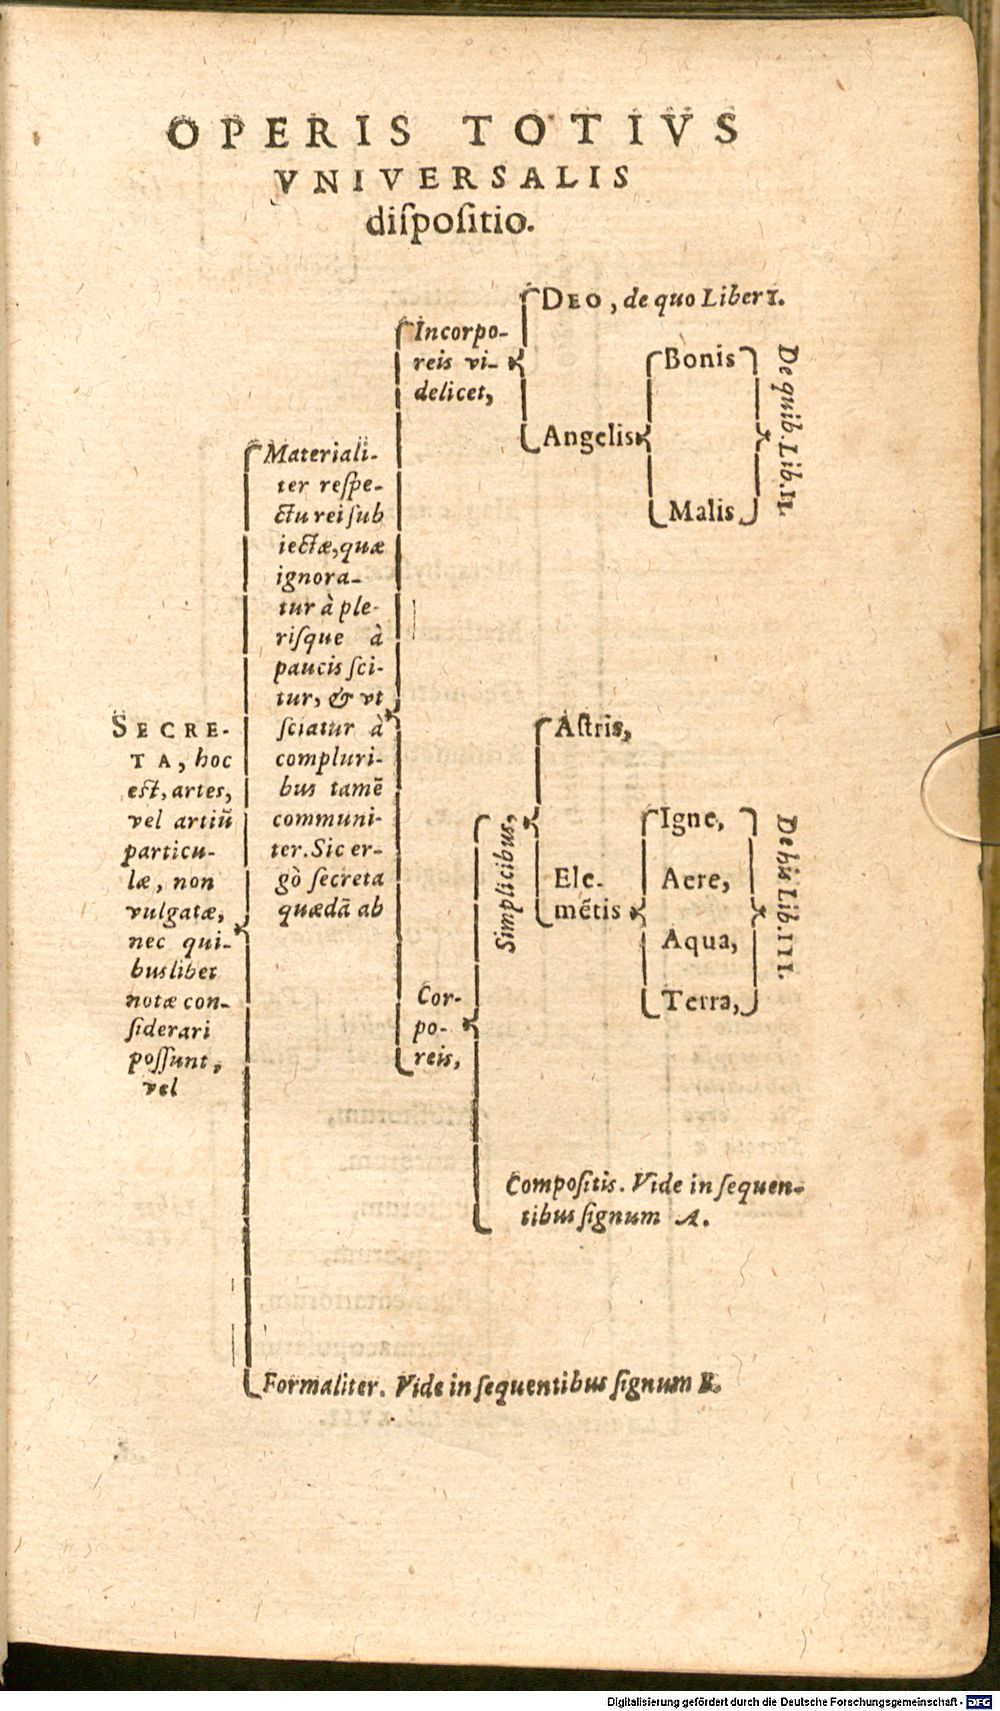 OPERIS TOTIVS
VNIVERSALIS
diſpoſitio.
SECRE-
TA, hoc
eſt, artes,
vel artiū
particu-
læ, non
vulgatæ,
nec qui-
buslibet
notæ con-
ſiderari
poſſunt,
vel
Materiali-
ter reſpe-
ctu rei ſub
iectæ, quæ
ignora-
tur à ple-
riſque à
paucis ſci-
tur, & vt
ſciatur à
compluri-
bus tamē
communi-
ter. Sic er-
gò ſecreta
quædā ab
Incorpo-
reis vi-
delicet,
DEO, de quo Liber I.
Angelis
Bonis
Malis
De quib. Lib. II.
Cor-
po-
reis,
Simplicibus,
Aſtris,
Ele-
mētis
Igne,
Aere,
Aqua,
Terra,
De his Lib. III.
Compoſitis. Vide in ſequen-
tibus ſignum A.
Formaliter. Vide in ſequentibus ſignum B.
Digitalisierung gefördert durch die Deutsche Forschungsgemeinschaft - DFG